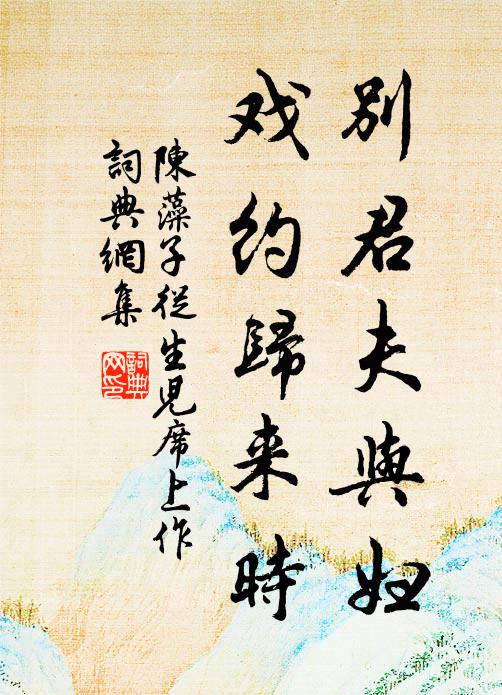 别君夫與妇
戏约歸来時
陳藻子從生児席上作
詞典網集
詞典网印